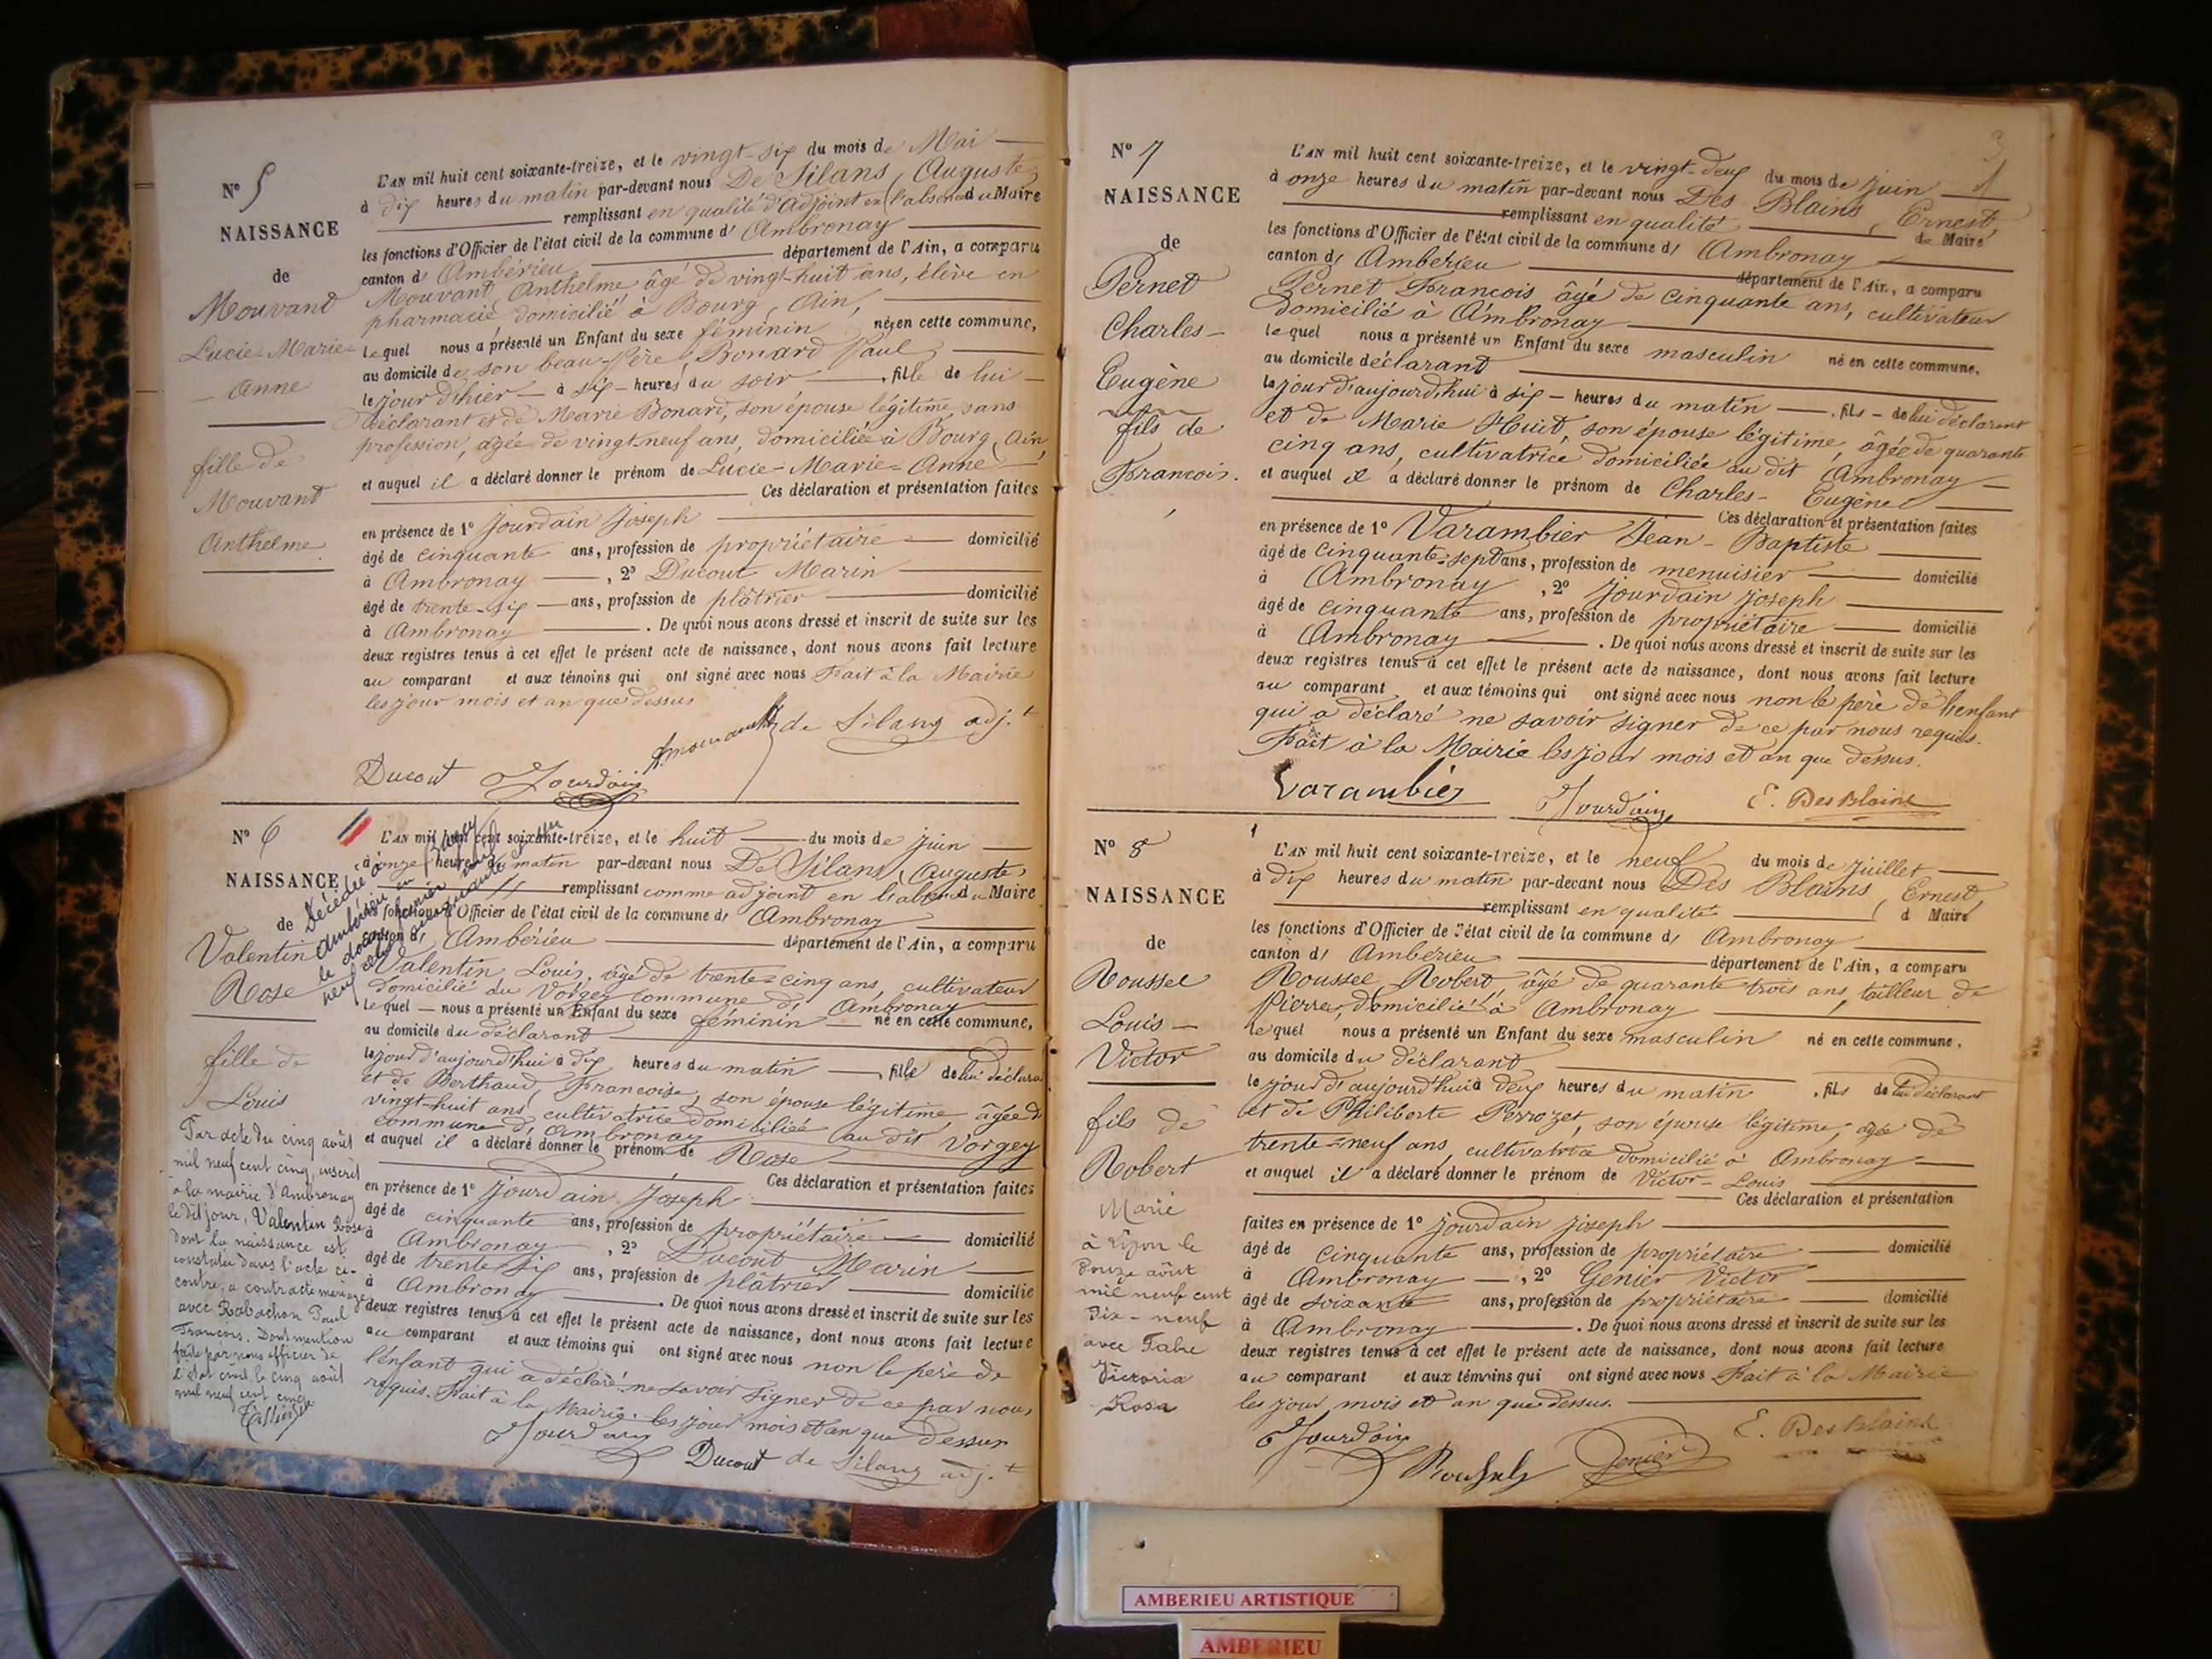 N° 5
NAISSANCE
de
Mouvand
Lucie-Marie-
Anne
fille de
Mouvand
Anthelme.
L'AN mil huit cent soixante-treize, et le vingt-six du mois de Mai
à dix heures du matin par-devant nous De Silans, Auguste,
remplissant en qualité d'Adjoint en l'absence du Maire
les fonctions d'Officier de l'état civil de la commune d' Ambronay
canton d' Ambérieu département de l'Ain, a comparu
Mouvant, Anthelme âgé de vingt-huit ans, élève en
pharmacie domicilié à Bourg, Ain,
lequel nous a présenté un Enfant du sexe féminin née en cette commune,
au domicile de son beau-père, Bonard Paul,
le jour d'hier à six heures du soir, fille de lui
déclarant et de Marie Bonard, son épouse légitime, sans
profession, agée de vingt-neuf ans, domiciliée à Bourg, Ain,
et auquel il a déclaré donner le prénom de Lucie-Marie-Anne
Ces déclaration et présentation faites
en présence de 1° Jourdain Joseph
âgé de cinquante ans, profession de propriétaire domicilié
à Ambronay, 2° Ducout Marin
âgé de trente-six ans, profession de plâtrier domicilié
à Ambronay. De quoi nous avons dressé et inscrit de suite sur les
deux registres tenus à cet effet le présent acte de naissance, dont nous avons fait lecture
au comparant et aux témoins qui ont signé avec nous Fait à la Mairie
les jour mois et an que dessus
de Silans adj.t
Ducout Jourdain
N° 6
NAISSANCE
de
Valentin
Rose
fille de
Louis
Décédée à
Ambérieu en Bugey
le douze février mil
neuf cent cinquante
Par acte du cinq août
mil neuf cent cinq, inscrit
à la mairie d'Ambronay
le dit jour, Valentin Rose
dont la naissance est
constatée dans l'acte ci-
contre, a contracté mariage
avec Rabachon Paul
François. Dont mention
faite par nous officier de
l'état civil le cinq août
mil neuf cent cinq
L'AN mil huit cent soixante-treize, et le huit du mois de juin
à onze heures du matin par-devant nous De Silans, Auguste,
remplissant comme adjoint en l'absence du Maire
les fonctions d'Officier de l'état civil de la commune d' Ambronay
canton d' Ambérieu département de l'Ain, a comparu
Valentin, Louis, âgé de trente-cinq ans, cultivateur
domicilié au Vorgey commune d' Ambronay
lequel nous a présenté un Enfant du sexe féminin né en cette commune,
au domicile du déclarant
le jour d'aujourd'hui à dix heures du matin, fille de lui déclarant
et de Berthaud, Françoise, son épouse légitime, âgée de
vingt-huit ans, cultivatrice domiciliée au dit Vorgey
commune d' Ambronay
et auquel il a déclaré donner le prénom de Rose
Ces déclaration et présentation faites
en présence de 1° Jourdain Joseph
âgé de cinquante ans, profession de propriétaire domicilié
à Ambronay, 2° Ducout Marin
âgé de trente six ans, profession de plâtrier domicilié
à Ambronay. De quoi nous avons dressé et inscrit de suite sur les
deux registres tenus à cet effet le présent acte de naissance, dont nous avons fait lecture
au comparant et aux témoins qui ont signé avec nous non le père de
l'enfant qui a déclaré ne savoir signer de ce par nous
requis. Fait à la Mairie les jour mois et an que dessus
Jourdain Ducout de Silans adj.t
3
N° 7
NAISSANCE
de
Pernet
Charles-
Eugène
fils de
François.
L'AN mil huit cent soixante-treize, et le vingt-deux du mois de juin
à onze heures du matin par-devant nous Des Blains, Ernest,
remplissant en qualité de Maire
les fonctions d'Officier de l'état civil de la commune d' Ambronay
canton d' Ambérieu département de l'Ain, a comparu
Pernet François, âgé de cinquante ans, cultivateur
domicilié à Ambronay
lequel nous a présenté un Enfant du sexe masculin né en cette commune.
au domicile déclarant
le jour d'aujourd'hui à six heures du matin, fils de lui déclarant
et de Marie Huit, son épouse légitime, âgée de quarante
cinq ans, cultivatrice domiciliée au dit Ambronay
et auquel il a déclaré donner le prénom de Charles-Eugène
Ces déclaration et présentation faites
en présence de 1° Varambier Jean-Baptiste
âgé de cinquante-sept ans, profession de menuisier domicilié
à Ambronay, 2° Jourdain Joseph
âgé de cinquante ans, profession de propriétaire domicilié
à Ambronay. De quoi nous avons dressé et inscrit de suite sur les
deux registres tenus à cet effet le présent acte de naissance, dont nous avons fait lecture
au comparant et aux témoins qui ont signé avec nous non le père de l'enfant
qui a déclaré ne savoir signer de ce par nous requis.
Fait à la Mairie les jour mois et an que dessus.
Varambier Jourdain E. Des Blains
N° 8
NAISSANCE
de
Roussel
Louis-
Victor
fils de
Robert
Marié
à Lyon le
douze août
mil neuf cent
dix-neuf
avec Fabre
Victoria
Rosa
L'AN mil huit cent soixante-treize, et le neuf du mois de juillet
à dix heures du matin par-devant nous Des Blains, Ernest,
remplissant en qualité d Maire
les fonctions d'Officier de l'état civil de la commune d' Ambronay
canton d' Ambérieu département de l'Ain, a comparu
Roussel, Robert, âgé de quarante trois ans, tailleur de
Pierres, domicilié à Ambronay
lequel nous a présenté un Enfant du sexe masculin né en cette commune.
au domicile du déclarant
le jour d'aujourd'hui à deux heures du matin, fils de lui déclarant
et de Philiberte Perrozet, son épouse légitime, agée de
trente-neuf ans, cultivatrice domicilié à Ambronay
et auquel il a déclaré donner le prénom de Victor-Louis
Ces déclaration et présentation
faites en présence de 1° Jourdain Joseph
âgé de cinquante ans, profession de propriétaire domicilié
à Ambronay, 2° Genier Victor
âgé de soixante ans, profession de propriétaire domicilié
à Ambronay. De quoi nous avons dressé et inscrit de suite sur les
deux registres tenus à cet effet le présent acte de naissance, dont nous avons fait lecture
au comparant et aux témoins qui ont signé avec nous Fait à la Mairie
les jour, mois et an que dessus.
Jourdain Genier E. Des Blains
AMBERIEU ARTISTIQUE
AMBERIEU